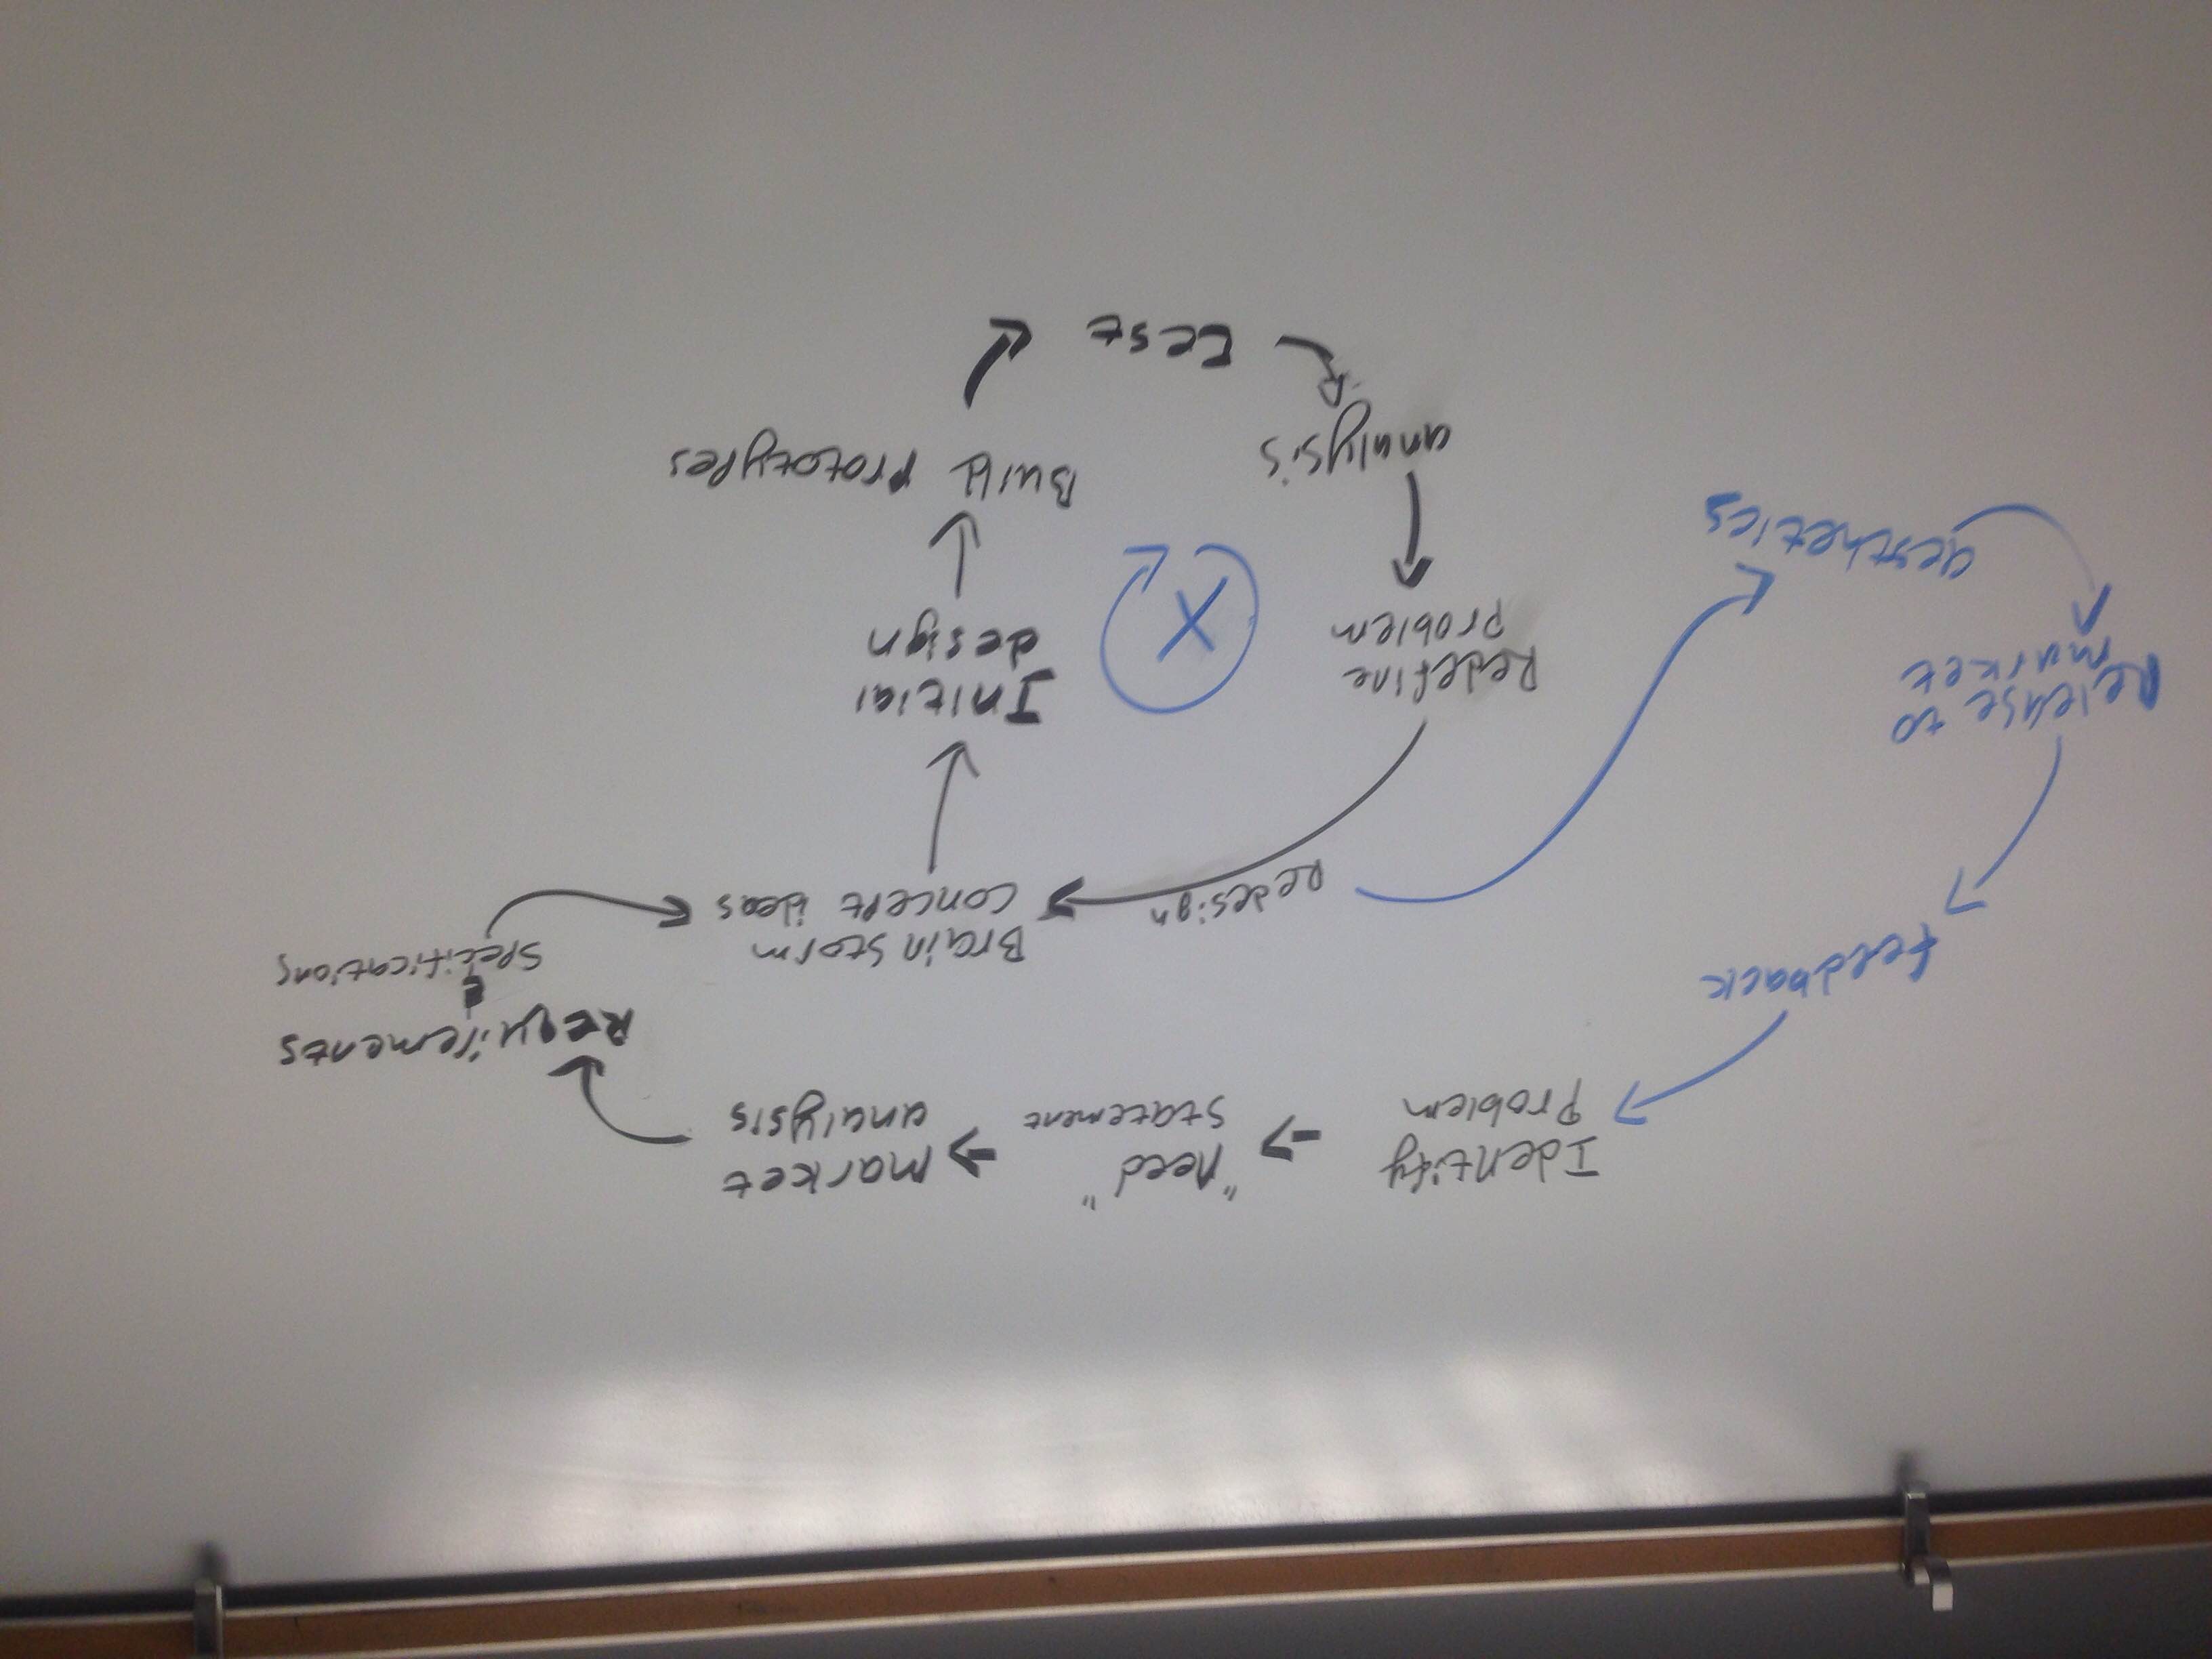 Identify
Problem
"Need"
Statement
market
analysis
Requirements
&
Specifications
Brain Storm
concept ideas
Redesign
Initial
design
Build Prototypes
Test
analysis
Redefine
Problem
X
aesthetics
Release to
market
feedback